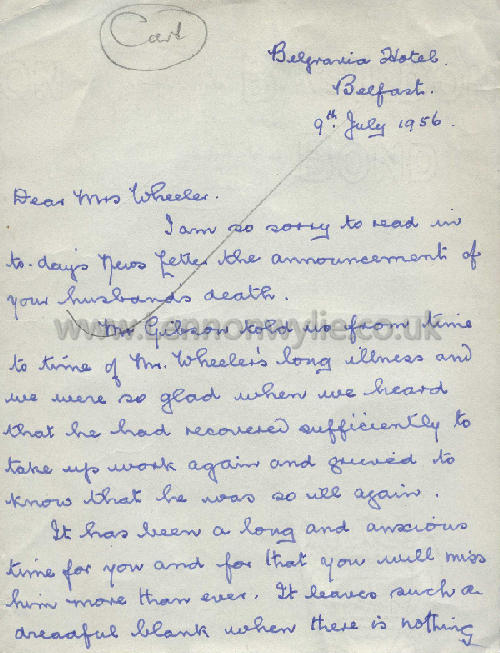 Cart
Belgravia Hotel.
Belfast.
9th July 1956.
Dear Mrs Wheeler.
I am so sorry to read in
to-days News Letter the announcement of
your husbands death.
www.lennonwylie.co.uk
Mr Gibson told us from time
to time of Mr. Wheeler's long illness and
we were so glad when we heard
that he had recovered sufficiently to
take up work again and grieved to
know that he was so ill again.
It has been a long and anxious
time for you and for that you will miss
him more than ever. It leaves such a
dreadful blank when there is nothing